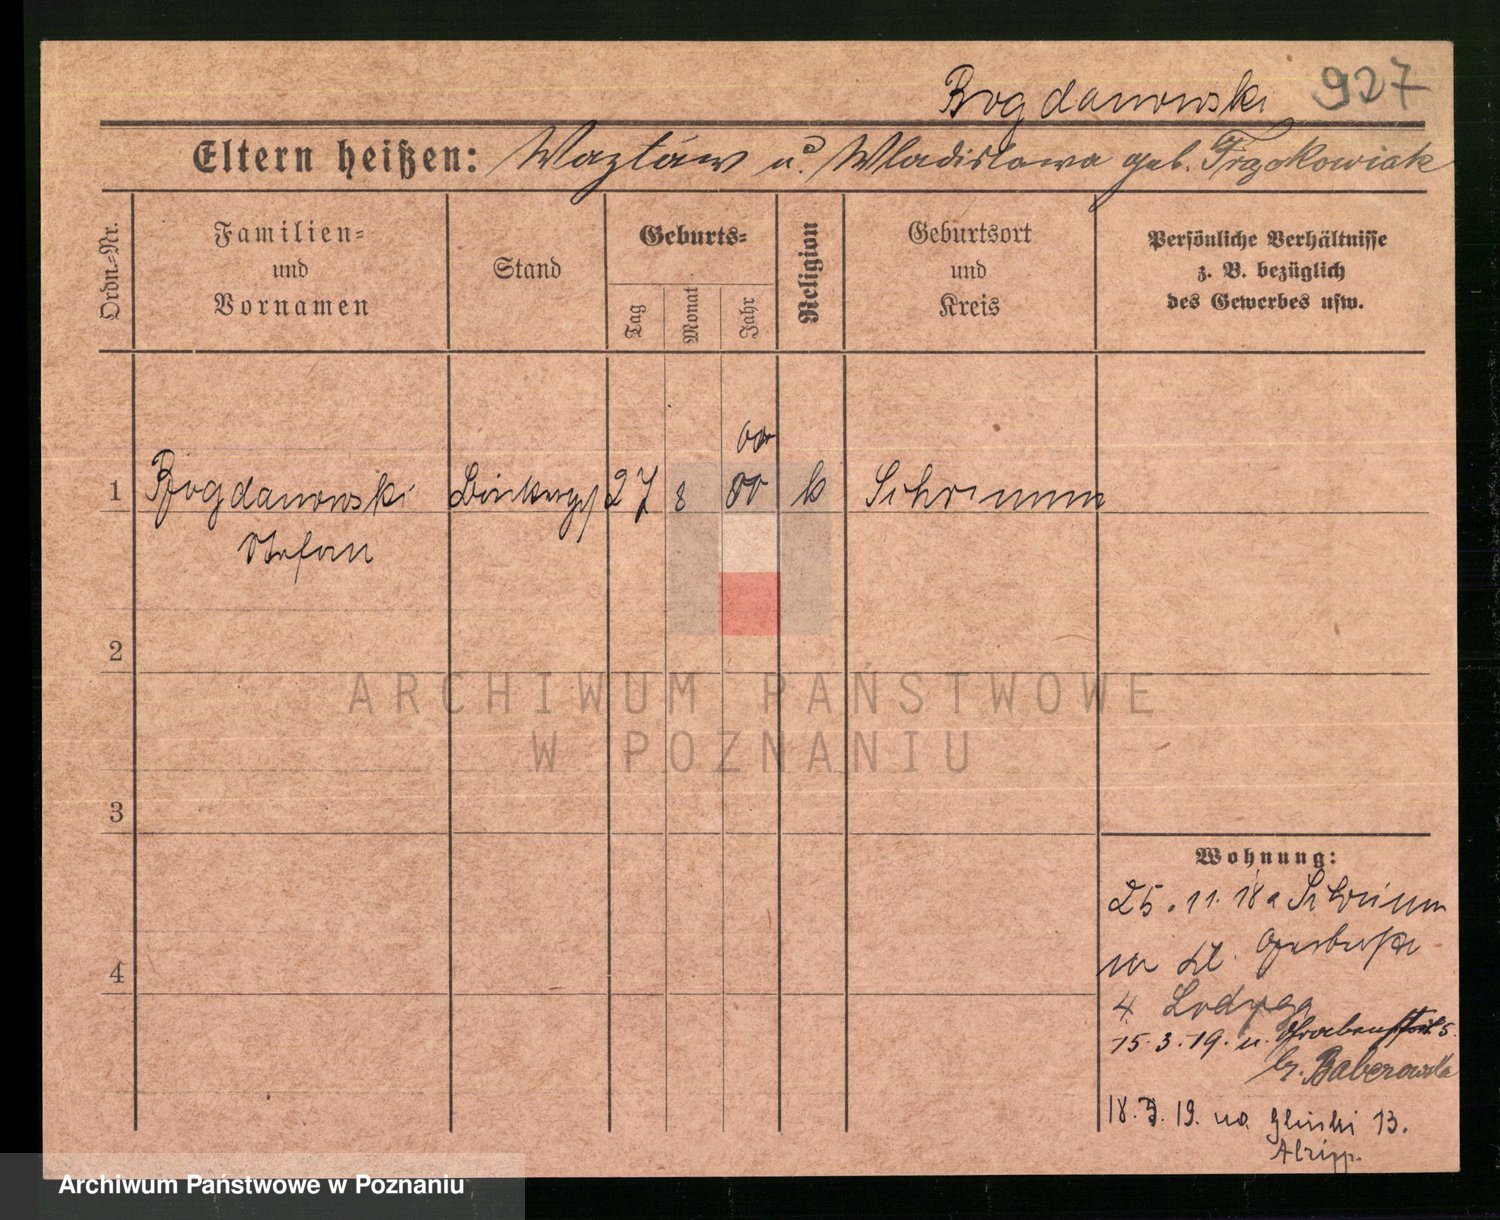 Bogdanowski 927
Eltern heißen: Wazław u. Wladislawa geb. Trzokowiak
Ordn.-Nr.
Familien-
und
Vornamen
Stand
Geburts-
Tag
Monat
Jahr
Religion
Geburtsort
und
Kreis
Persönliche Verhältnisse
z. B. bezüglich
des Gewerbes usw.
00
1 Bogdanowski 27 8 00 k Schrimm
Stefan
2
ARCHIWUM PAŃSTWOWE
W POZNANIU
3
Wohnung:
25. 11. 18 a Schrimm
4
4
15. 3. 19. n. 5.
b. Baberowska
18. 3. 19. na Glinski 13.
Archiwum Państwowe w Poznaniu